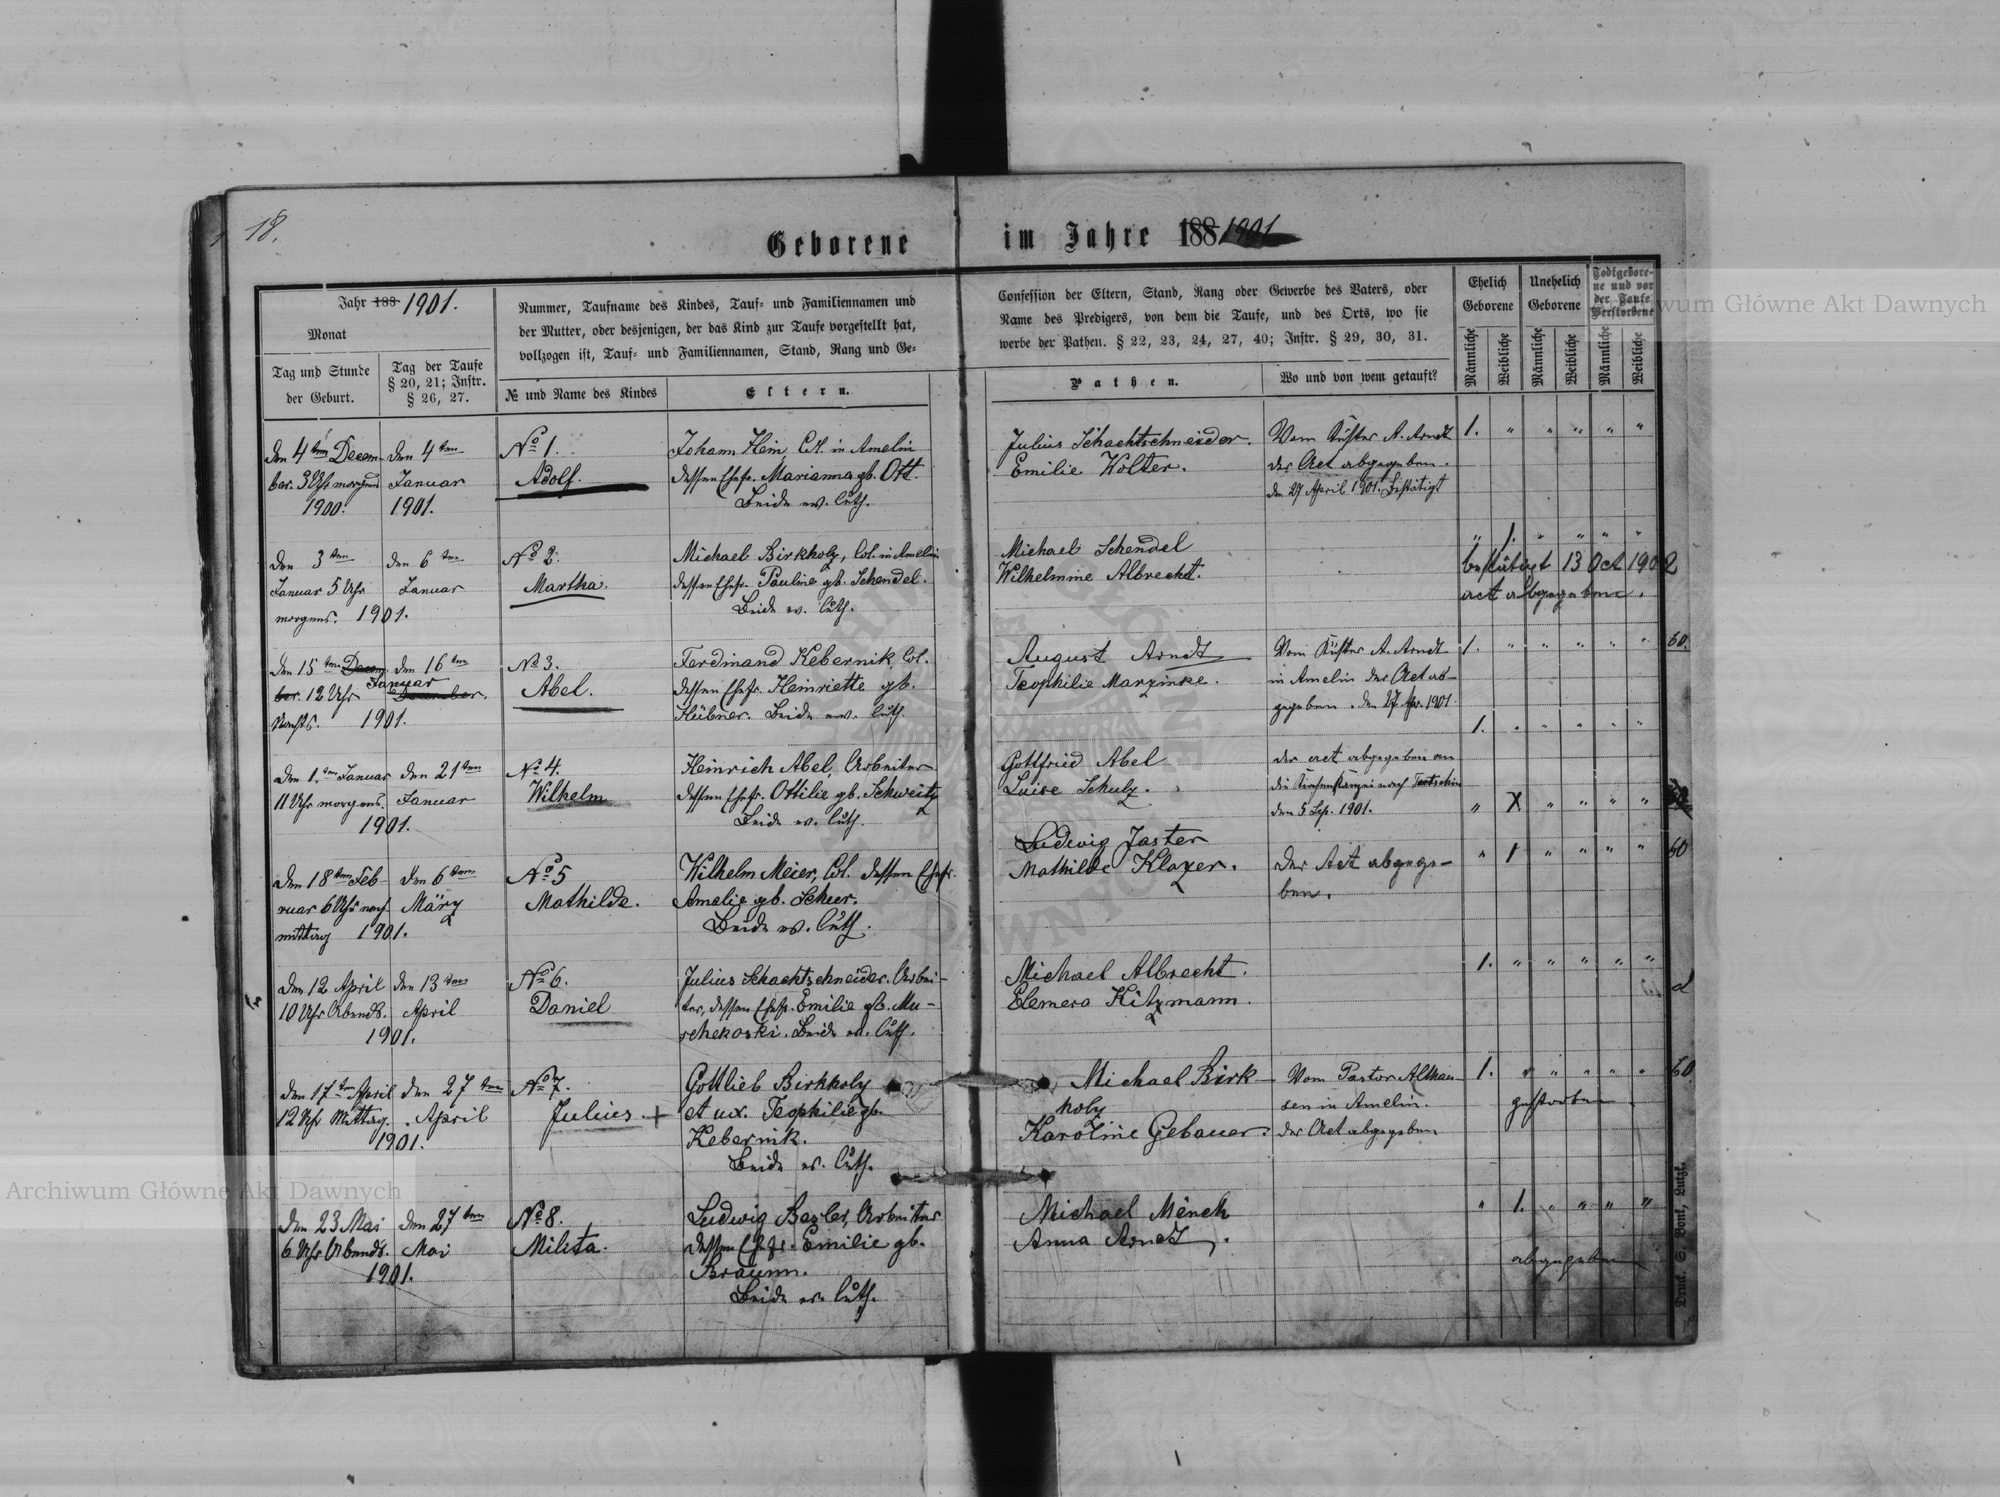 18.
Geborene im Jahre 188 1901
Jahr 188 1901.
Monat
Tag und Stunde
der Geburt.
Tag der Taufe
§ 20, 21; Instr.
§ 26, 27.
Nummer, Taufname des Kindes, Tauf- und Familiennamen und
der Mutter, oder desjenigen, der das Kind zur Taufe vorgestellt hat,
vollzogen ist, Tauf- und Familiennamen, Stand, Rang und Ge-
№ und Name des Kindes
Eltern.
Confession der Eltern, Stand, Rang oder Gewerbe des Vaters, oder
Name des Predigers, von dem die Taufe, und des Orts, wo sie
werbe der Pathen. § 22, 23, 24, 27, 40; Instr. § 29, 30, 31.
Pathen.
Wo und von wem getauft?
Ehelich
Geborene
Unehelich
Geborene
Todtgebore-
ne und vor
der Taufe
Verstorbene
Männliche
Weibliche
Männliche
Weibliche
Männliche
Weibliche
Den 4ten Decem-
ber. 3 Uhr morgens
1900.
den 4ten
Januar
1901.
No 1.
Adolf.
Johann Hein, Col. in Amelin
dessen Ehefr. Marianna gb. Ott.
Beide ev. luth.
Julius Schachtschneider.
Emilie Wolter.
Vom Küster A. Arndt
der Act abgegeben.
den 27 April 1901. Bestätigt
1. " " " " "
Den 3ten
Januar 5 Uhr
morgens. 1901.
den 6ten
Januar
No 2.
Martha.
Michael Birkholz, Col. in Amelin
dessen Ehefr. Pauline gb. Schendel.
Beide ev. luth.
Michael Schendel
Wilhelmine Albrecht.
" 1. " " " "
bestätiget 13 Oct 1902
act abgegeben.
Den 15ten Decem-
ber. 12 Uhr
Nachts. 1901.
den 16ten
Januar
December.
No 3.
Abel.
Ferdinand Kebernik, Col.
dessen Ehefr. Heinriette gb.
Hübner. Beide ev. luth.
August Arndt
Teophilie Marzinke.
Vom Küster A. Arndt
in Amelin der Act ab-
gegeben. den 27. Apr. 1901
1. " " " " " 60.
Den 1.ten Januar
11 Uhr morgens.
1901.
den 21ten
Januar
No 4.
Wilhelm
Heinrich Abel, Arbeiter
dessen Ehefr. Ottilie gb. Schweitz
Beide ev. luth.
Gottfried Abel
Luise Schulz.
der act abgegeben an
die Kirchenkanzlei nach
den 5 Sep. 1901.
1. " " " " "
" X " " " "
Den 18ten Feb
ruar 6 Uhr nach-
mittag 1901.
den 6ten
März
No 5
Mathilde.
Wilhelm Meier, Col. dessen Ehefr.
Amelie gb. Scheer.
Beide ev. luth.
Ludwig Jaster
Mathilde Klazer.
der Act abgege-
ben.
" 1 " " " " 60
Den 12 April
10 Uhr Abends.
1901.
den 13ten
April
No 6.
Daniel
Julius Schachtschneider. Arbei-
ter, dessen Ehefr. Emilie gb. Mu-
schekoski. Beide ev. luth.
Michael Albrecht.
Elemera Kitzmann.
1. " " " " "
Den 17ten April
12 Uhr Mittag.
1901.
den 27ten
April
No 7.
Julius. +
Gottlieb Birkholz
et ux. Teophilie gb.
Kebernik.
Beide ev. luth.
Michael Birk-
holz
Karoline Gebauer.
Vom Pastor Althau-
sen in Amelin.
der Act abgegeben
1. " " " " " 60
gestorben.
Den 23 Mai
6 Uhr Abends.
1901.
den 27ten
Mai
No 8.
Milita.
Ludwig Besler, Arbeiter
dessen Ehefr. Emilie gb.
Braunn.
Beide ev. luth.
Michael Mench
Anna Arndt.
" 1. " " " "
abgegeben
Druck. S. Bonk, Lutzk.
Archiwum Główne Akt Dawnych
Archiwum Główne Akt Dawnych